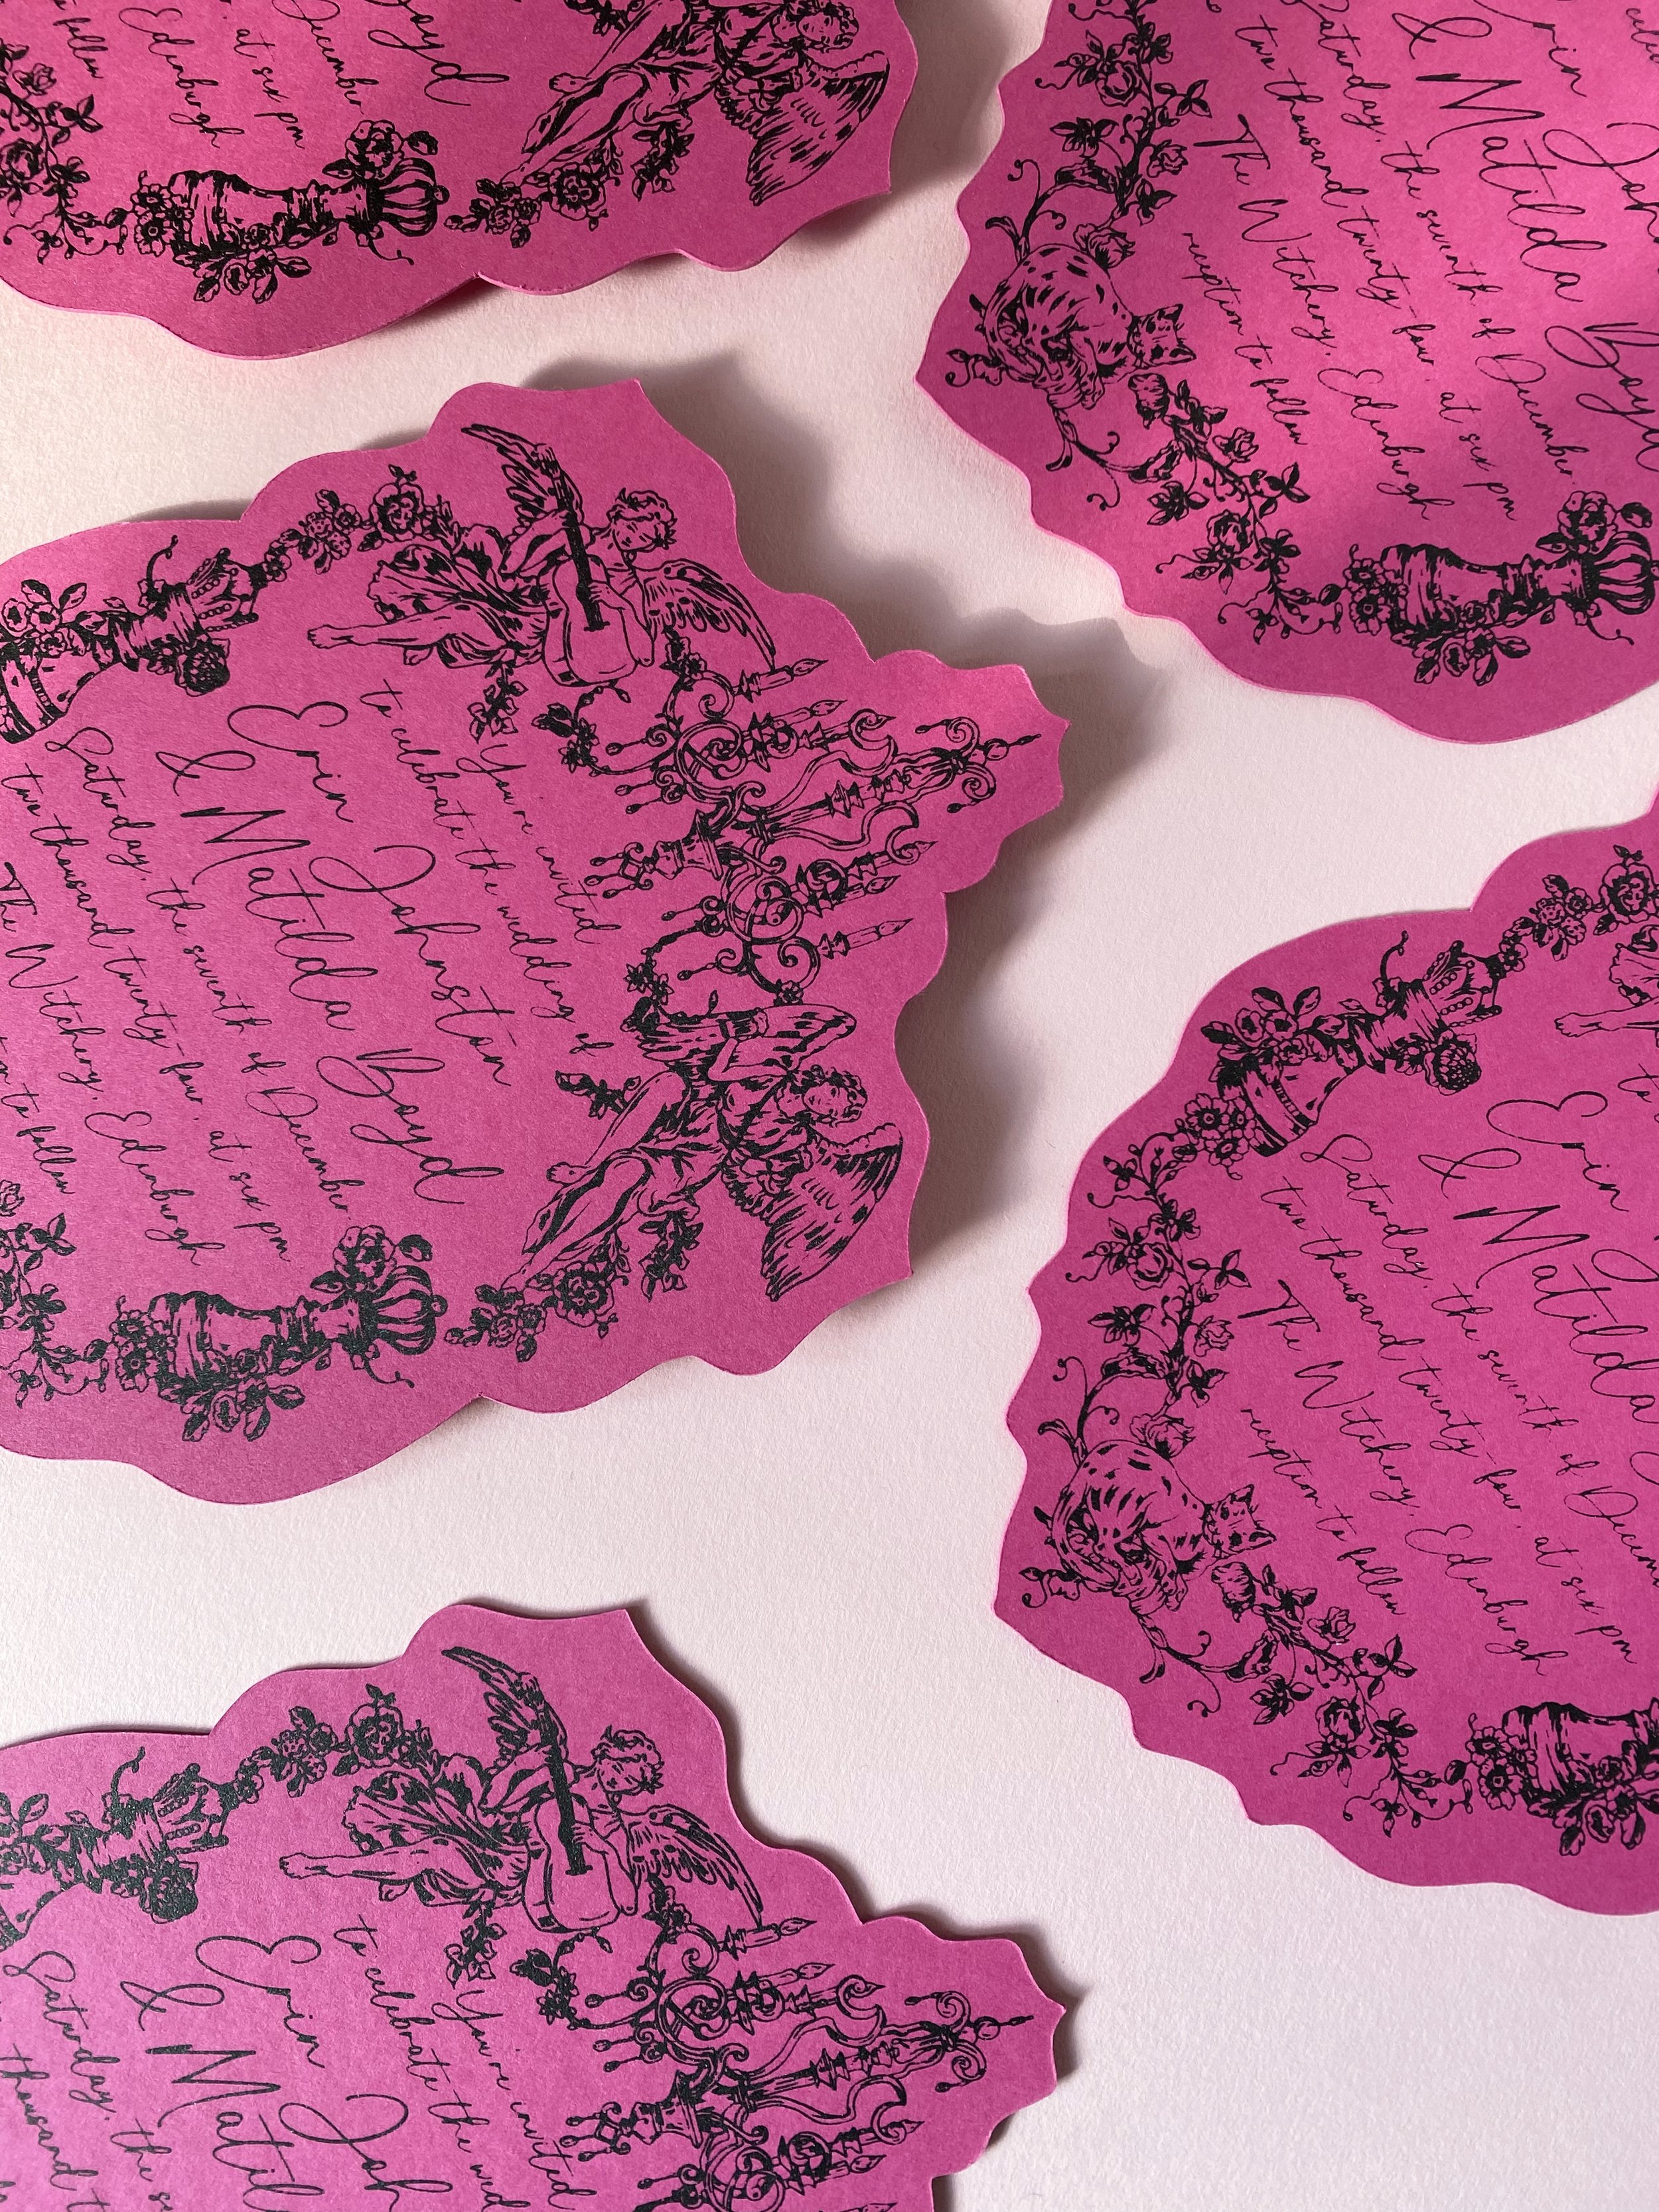 Boyd
December
at six pm
Edinburgh
to follow
Erin John
& Matilda Boyd
Saturday, the seventh of December
two thousand twenty-four, at six pm
The Witchery, Edinburgh
reception to follow
You're invited
to celebrate the wedding of
Erin Johnston
& Matilda Boyd
Saturday, the seventh of December
two thousand twenty-four, at six pm
The Witchery, Edinburgh
to follow
Erin
& Matilda
Saturday, the seventh of Decem
two thousand twenty-four, at six pm
The Witchery, Edinburgh
reception to follow
You're invited
to celebrate the wed
Erin Joh
& Matil
Saturday, the se
thousand t